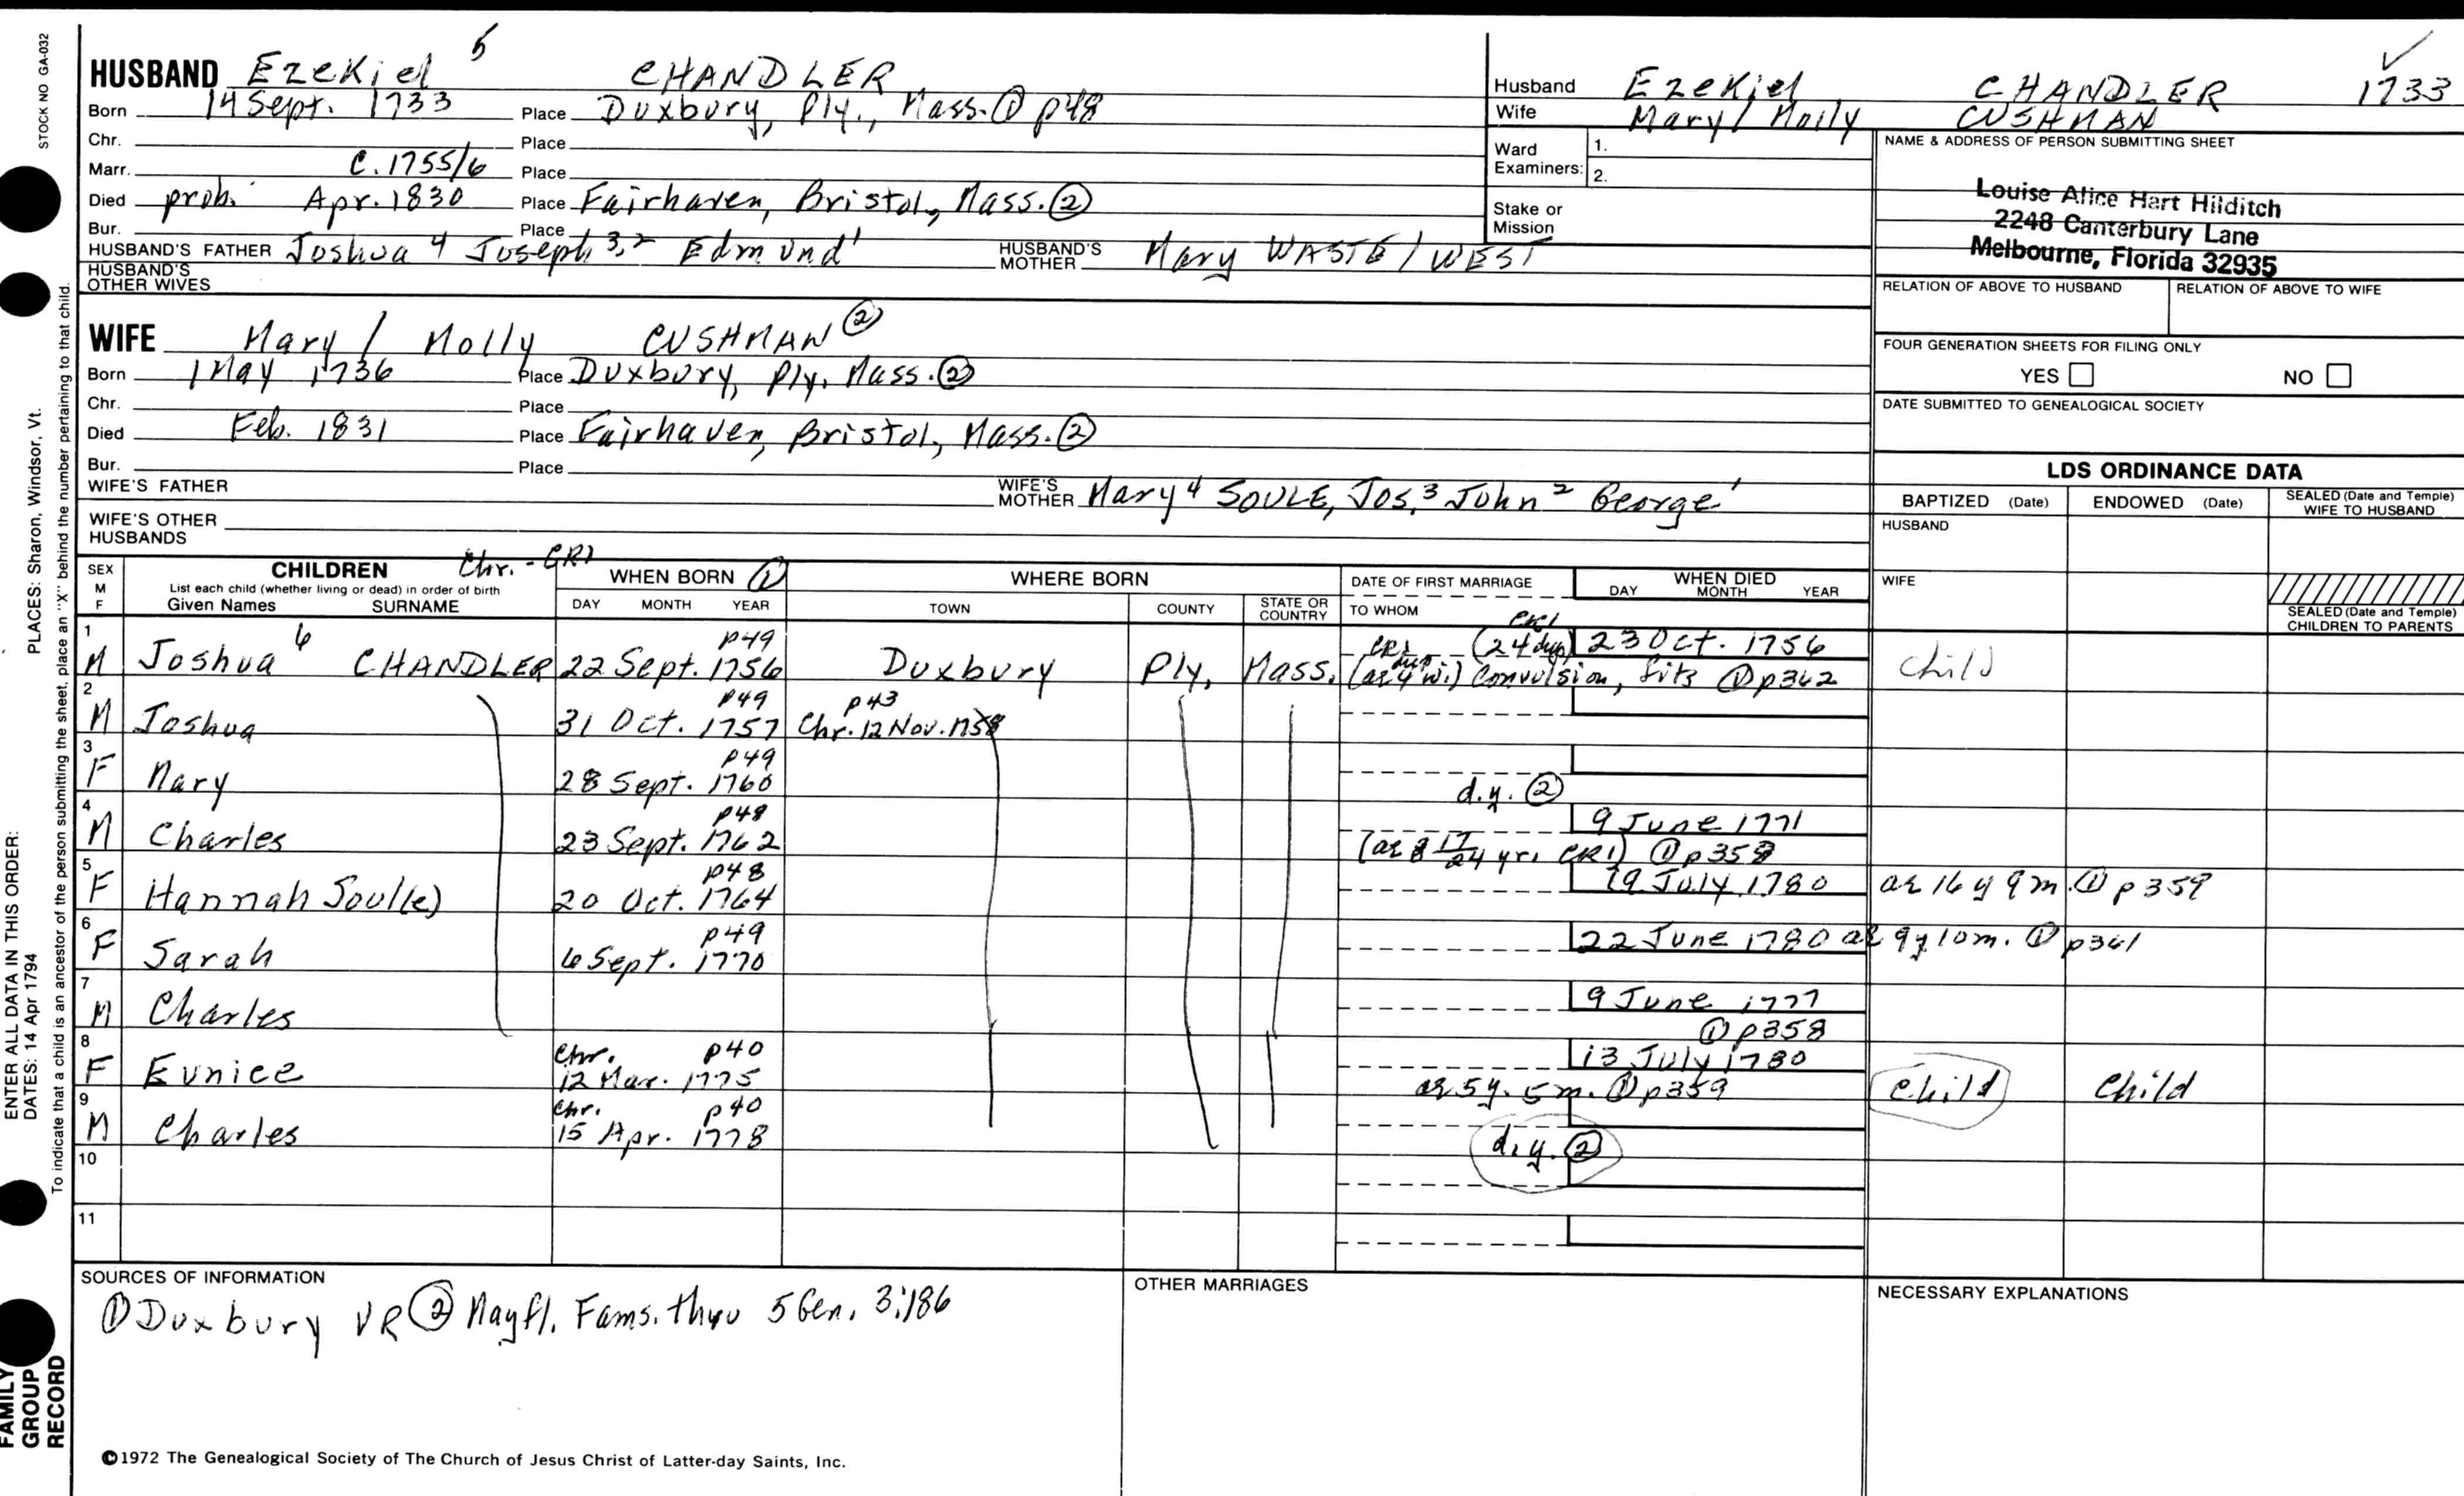 STOCK NO GA-032
HUSBAND Ezekiel 5 CHANDLER
Born 14 Sept. 1733 Place Duxbury, Ply., Mass. ① p48
Chr. Place
Marr. C. 1755/6 Place
Died prob. Apr. 1830 Place Fairhaven, Bristol, Mass. ②
Bur. Place
HUSBAND'S FATHER Joshua 4 Joseph 3,2 Edmund 1 HUSBAND'S MOTHER Mary WASTE / WEST
HUSBAND'S OTHER WIVES
WIFE Mary / Molly CUSHMAN ②
Born 1 May 1736 Place Duxbury, Ply, Mass. ②
Chr. Place
Died Feb. 1831 Place Fairhaven, Bristol, Mass. ②
Bur. Place
WIFE'S FATHER WIFE'S MOTHER Mary 4 SOULE, Jos. 3 John 2 George 1
WIFE'S OTHER HUSBANDS
Husband Ezekiel CHANDLER 1733
Wife Mary / Molly CUSHMAN
Ward Examiners: 1.
2.
Stake or Mission
NAME & ADDRESS OF PERSON SUBMITTING SHEET
Louise Alice Hart Hilditch
2248 Canterbury Lane
Melbourne, Florida 32935
RELATION OF ABOVE TO HUSBAND RELATION OF ABOVE TO WIFE
FOUR GENERATION SHEETS FOR FILING ONLY
YES NO
DATE SUBMITTED TO GENEALOGICAL SOCIETY
LDS ORDINANCE DATA
BAPTIZED (Date) ENDOWED (Date) SEALED (Date and Temple) WIFE TO HUSBAND
HUSBAND
WIFE
SEALED (Date and Temple) CHILDREN TO PARENTS
SEX M F CHILDREN Chr. - CR1 WHEN BORN ① WHERE BORN DATE OF FIRST MARRIAGE WHEN DIED
List each child (whether living or dead) in order of birth
Given Names SURNAME DAY MONTH YEAR TOWN COUNTY STATE OR COUNTRY TO WHOM DAY MONTH YEAR
1 M Joshua 6 CHANDLER p49 22 Sept. 1756 Duxbury Ply, Mass. CR1 (24 dup) 23 Oct. 1756 child
CR1 dup (ae 4 w.) Convulsion, fits ① p362
2 M Joshua p49 31 Oct. 1757 p43 Chr. 12 Nov. 1758
3 F Mary p49 28 Sept. 1760
d.y. ②
4 M Charles p48 23 Sept. 1762 9 June 1771
(ae 8 17/24 yr. CR1) ① p358
5 F Hannah Soul(e) p48 20 Oct. 1764 19 July 1780 ae 16 y 9 m. ① p359
6 F Sarah p49 6 Sept. 1770 22 June 1780 ae 9 y 10 m. ① p361
7 M Charles 9 June 1777
① p358
8 F Eunice Chr. p40 12 Mar. 1775 13 July 1780
ae 5 y. 5 m. ① p359 child child
9 M Charles Chr. p40 15 Apr. 1778
d.y. ②
10
11
SOURCES OF INFORMATION
① Duxbury VR ② Mayfl. Fams. thru 5 Gen. 3:186
OTHER MARRIAGES
NECESSARY EXPLANATIONS
©1972 The Genealogical Society of The Church of Jesus Christ of Latter-day Saints, Inc.
ENTER ALL DATA IN THIS ORDER:
DATES: 14 Apr 1794 PLACES: Sharon, Windsor, Vt.
To indicate that a child is an ancestor of the person submitting the sheet, place an "X" behind the number pertaining to that child.
FAMILY
GROUP
RECORD